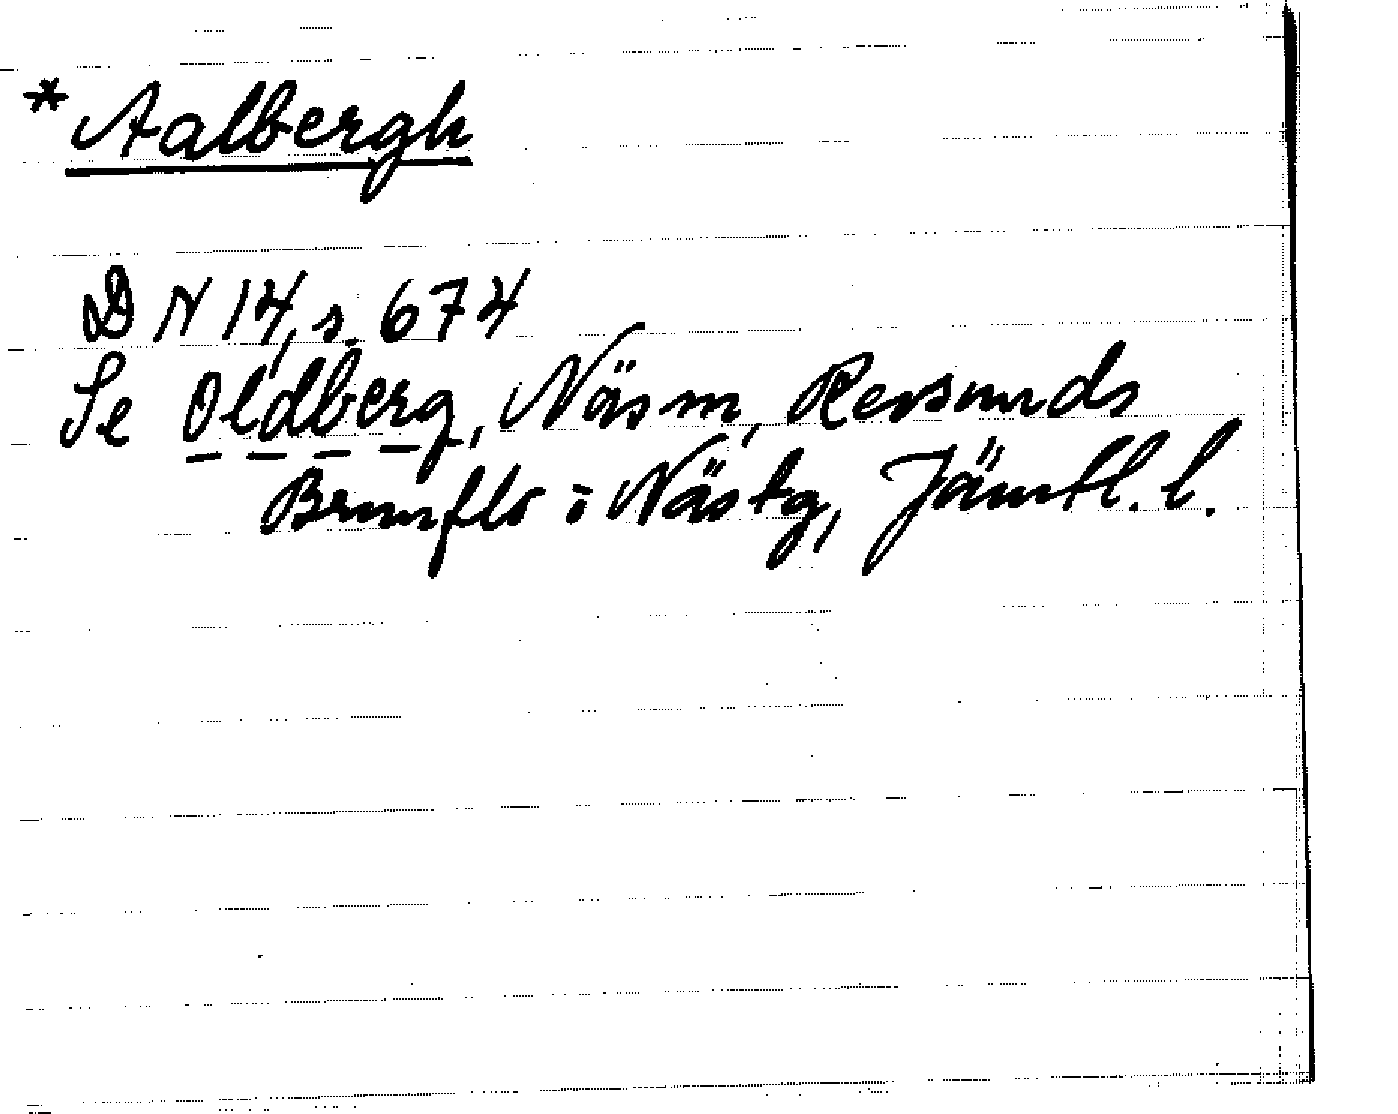 *Aalbergh
DN 14, s. 674
Se Oldberg, Näs sn, Revsunds
Brunflo i Näs tg, Jämtl. l.